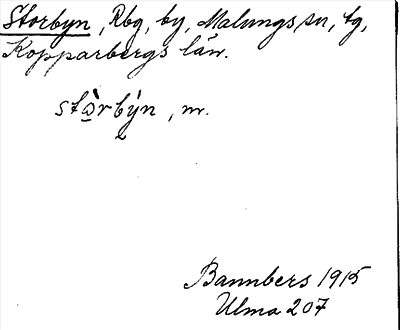 Storbyn, Rbg, by, Malungs sn, tg,
Kopparbergs län.
stɷ̀rbýn, m.
Bannbers 1915
Ulma 207